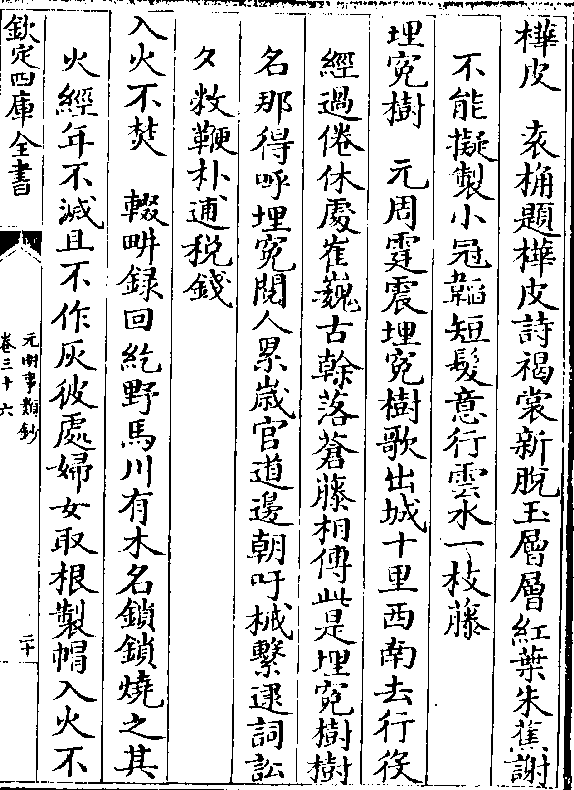 樺皮　袁桷題樺皮詩褐裳新脫玉層層紅葉朱蕉謝
不能擬製小冠韜短髮意行雲水一枝藤
埋寃樹　元周霆震埋寃樹歌出城十里西南去行役
經過倦休處崔巍古榦落蒼藤相傳此是埋寃樹樹
名那得呼埋寃閱人累歳官道邊朝吁械繫逮詞訟
夕救鞭朴逋税錢
入火不焚　輟畊録回紇野馬川有木名鎖鎖燒之其
火經年不滅且不作灰彼處婦女取根製帽入火不
欽定四庫全書
元明事類鈔
卷三十六
二十